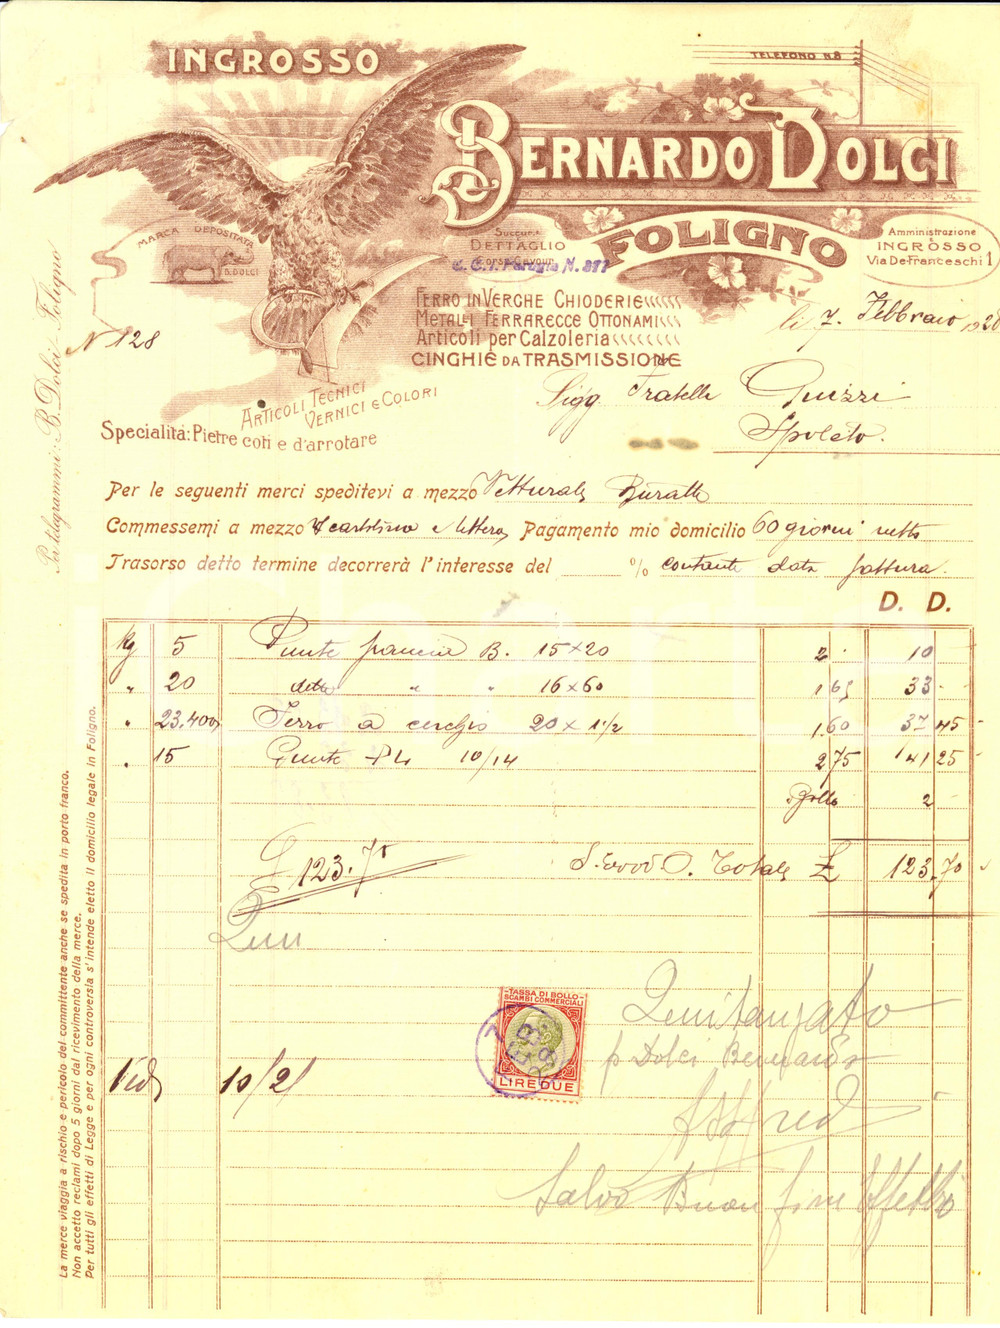 INGROSSO
TELEFONO N. 8
BERNARDO DOLCI
FOLIGNO
MARCA DEPOSITATA
B. DOLCI
Succurs.
DETTAGLIO
Corso Cavour
C.C.I. Perugia N. 877
Amministrazione
INGROSSO
Via DeFranceschi 1
FERRO IN VERGHE CHIODERIE
METALLI FERRARECCE OTTONAMI
ARTICOLI PER CALZOLERIA
CINGHIE DA TRASMISSIONE
ARTICOLI TECNICI
VERNICI E COLORI
Specialità: Pietre coti e d'arrotare
Pa telegrammi: B. Dolci - Foligno
N. 128
li 7. Febbraio 1928
Sigg Fratelli Guizzi
Spoleto.
Per le seguenti merci speditevi a mezzo Vetturale Buratti
Commessemi a mezzo V cartolina e lettera Pagamento mio domicilio 60 giorni netto
Trasorso detto termine decorrerà l'interesse del % contanti data fattura.
D. D.
Kg 5 Punte francia B. 15×20 2 . 10
" 20 dette " " 16×60 1.65 33 -
" 23.400 Ferro a cerchio 20 × 1 1/2 1.60 37 45
" 15 Punte 10/14 2 75 41 25
Bollo 2 -
£ 123.70 S.E.O.O. Totale £ 123.70
Qui
TASSA DI BOLLO
SCAMBI COMMERCIALI
LIRE DUE
Quitanzato
p Dolci Bernardo
10/2/
Salvo Buon fine effetto
La merce viaggia a rischio e pericolo del committente anche se spedita in porto franco.
Non accetto reclami dopo 5 giorni dal ricevimento della merce.
Per tutti gli effetti di Legge e per ogni controversia s'intende eletto il domicilio legale in Foligno.